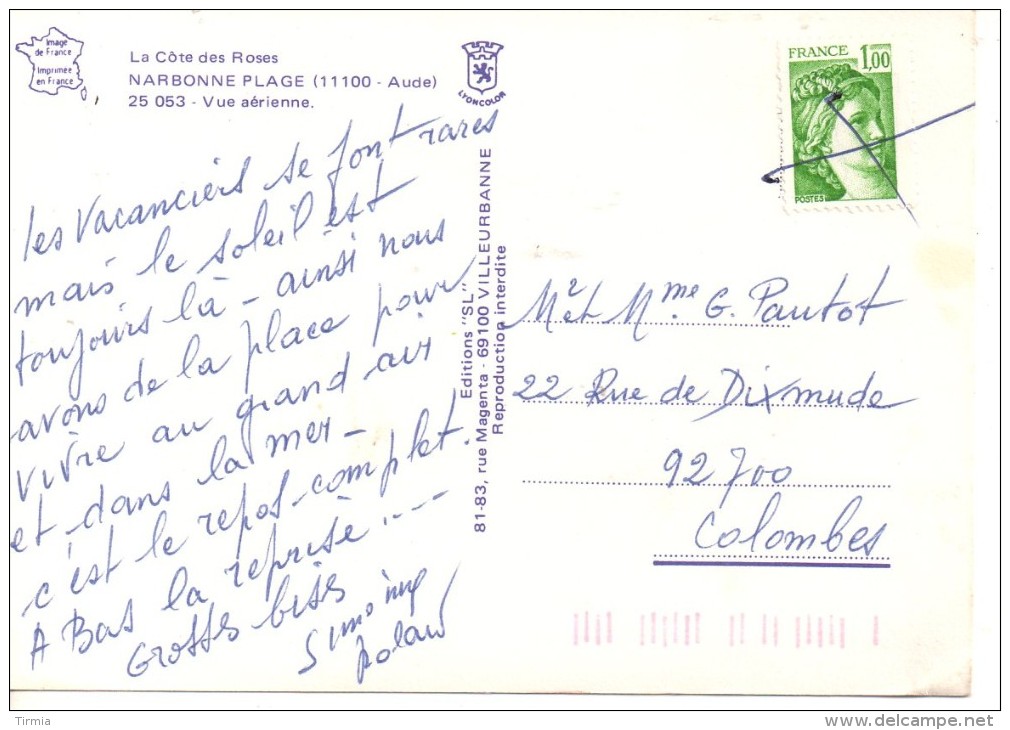 Image
de France
Imprimée
en France
La Côte des Roses
NARBONNE PLAGE (11100 - Aude)
25 053 - Vue aérienne.
LYONCOLOR
les vacanciers se font rares
mais le soleil est
toujours là - ainsi nous
avons de la place pour
vivre au grand air
et dans la mer -
c'est le repos complet.
A Bas la reprise .....
Grosses bises
Simone
Roland
Editions "SL"
81-83, rue Magenta - 69100 VILLEURBANNE
Reproduction interdite
FRANCE 1,00
POSTES
Mr et Mme. G. Pautot
22 Rue de Dixmude
92700
Colombes
Tirmia
delcampe.net